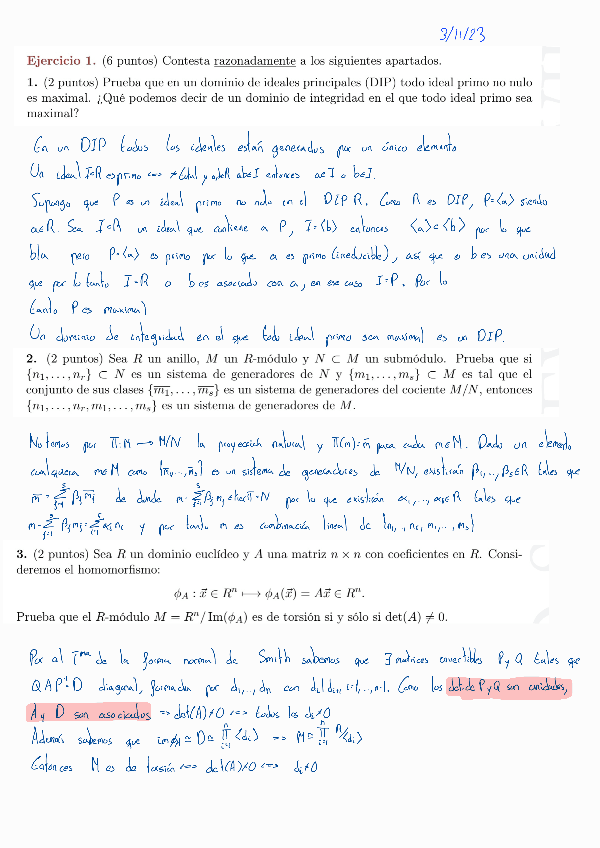 3/11/23
Ejercicio 1. (6 puntos) Contesta razonadamente a los siguientes apartados.
1. (2 puntos) Prueba que en un dominio de ideales principales (DIP) todo ideal primo no nulo
es maximal. ¿Qué podemos decir de un dominio de integridad en el que todo ideal primo sea
maximal?
En un DIP todos los ideales están generados por un único elemento
Un ideal I⊂R es primo y a,b∈R ab∈I entonces a∈I o b∈I.
Supongo que P es un ideal primo no nulo en el DIP R. Como R es DIP, P=⟨a⟩ siendo
a∈R. Sea I⊂R un ideal que contiene a P, I=⟨b⟩ entonces ⟨a⟩⊂⟨b⟩ por lo que
b|a pero P=⟨a⟩ es primo por lo que a es primo (irreducible), así que o b es una unidad
que por lo tanto I=R o b es asociado con a, en ese caso I=P. Por lo
tanto P es maximal
Un dominio de integridad en el que todo ideal primo sea maximal es un DIP.
2. (2 puntos) Sea R un anillo, M un R-módulo y N ⊂ M un submódulo. Prueba que si
{n₁, . . . , nᵣ} ⊂ N es un sistema de generadores de N y {m₁, . . . , mₛ} ⊂ M es tal que el
conjunto de sus clases {m̅₁, . . . , m̅ₛ} es un sistema de generadores del cociente M/N, entonces
{n₁, . . . , nᵣ, m₁, . . . , mₛ} es un sistema de generadores de M.
Notemos por π: M → M/N la proyección natural y π(m)=m̅ para cada m∈M. Dado un elemento
cualquiera m∈M como {m̅₁,...,m̅ₛ} es un sistema de generadores de M/N, existirán β₁,...,βₛ∈R tales que
m̅=∑ⱼ₌₁ˢ βⱼm̅ⱼ de donde m-∑ⱼ₌₁ˢ βⱼmⱼ∈ker π=N por lo que existirán α₁,...,αᵣ∈R tales que
m-∑ⱼ₌₁ˢ βⱼmⱼ=∑ᵢ₌₁ʳ αᵢnᵢ y por tanto m es combinación lineal de {n₁,..,nᵣ,m₁,..,mₛ}
3. (2 puntos) Sea R un dominio euclídeo y A una matriz n × n con coeficientes en R. Consi-
deremos el homomorfismo:
ϕ_A : x⃗ ∈ Rⁿ ⟼ ϕ_A(x⃗) = Ax⃗ ∈ Rⁿ.
Prueba que el R-módulo M = Rⁿ/ Im(ϕ_A) es de torsión si y sólo si det(A) ≠ 0.
Por el Tᵐᵃ de la forma normal de Smith sabemos que ∃ matrices invertibles P y Q tales que
QAP⁻¹=D diagonal, formada por d₁,..,dₙ con dᵢ|dᵢ₊₁ i=1,..,n-1. Como los det de P y Q son unidades,
A y D son asociados ⇒ det(A)≠0 ⟺ todos los dᵢ≠0
Además sabemos que im ϕ_A ≃ D ≃ ∏ᵢ₌₁ⁿ ⟨dᵢ⟩ ⇒ M ≃ ∏ᵢ₌₁ⁿ R/⟨dᵢ⟩
Entonces M es de torsión ⟺ det(A)≠0 ⟺ dᵢ≠0